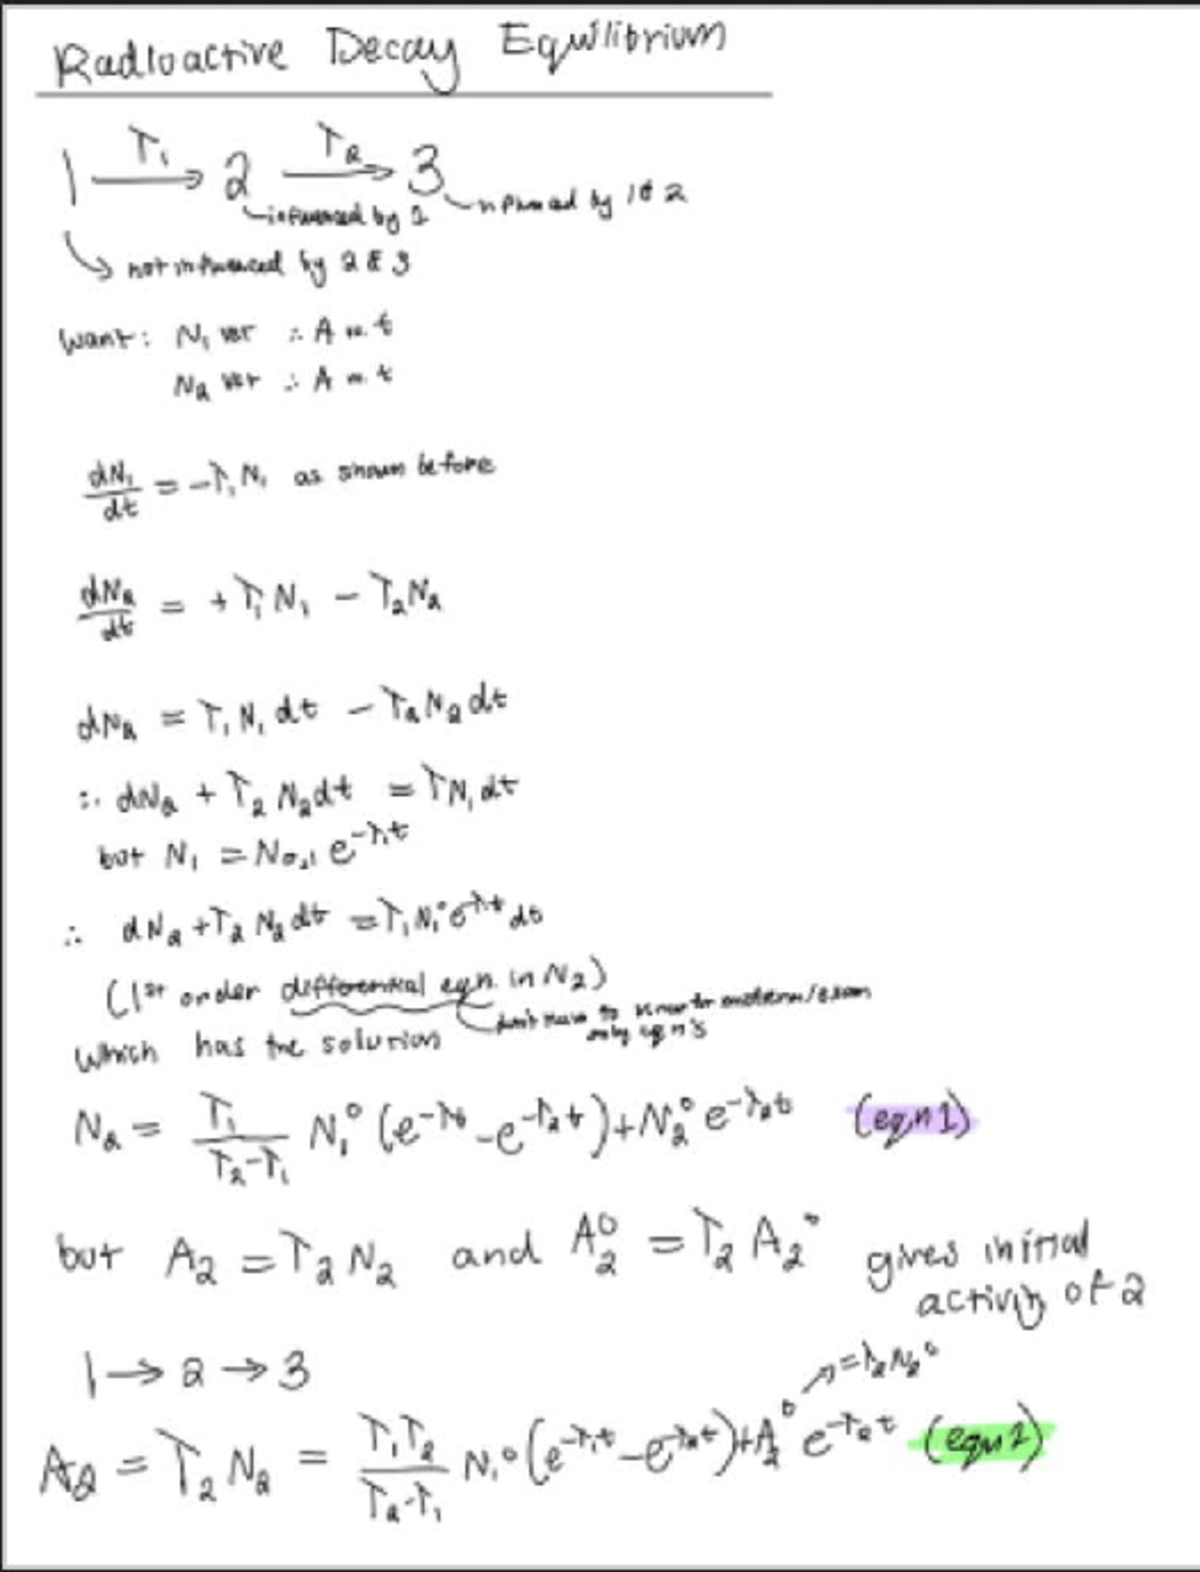 Radioactive Decay Equilibrium
1 —λ₁→ 2 —λ₂→ 3
influenced by 1
influenced by 1 & 2
not influenced by 2 & 3
Want: N₁ wrt ∴ A wrt t
N₂ wrt ∴ A wrt t
dN₁/dt = -λ₁N₁ as shown before
dN₂/dt = +λ₁N₁ - λ₂N₂
dN₂ = λ₁N₁dt - λ₂N₂dt
∴ dN₂ + λ₂N₂dt = λN₁dt
but N₁ = N₀,₁ e^-λ₁t
∴ dN₂ + λ₂N₂dt = λ₁N₁°e^-λt dt
(1st order differential eqn. in N₂)
don't have to know for midterm/exam
only eqn's
which has the solution
N₂ = λ₁/(λ₂-λ₁) N₁° (e^-λ₁t - e^-λ₂t) + N₂° e^-λ₂t (eqn 1)
but A₂ = λ₂N₂ and A₂° = λ₂A₂° gives initial
activity of 2
1 → 2 → 3
= λ₂N₂°
A₂ = λ₂N₂ = λ₁λ₂/(λ₂-λ₁) N₁° (e^-λ₁t - e^-λ₂t) + A₂° e^-λ₂t (eqn 2)